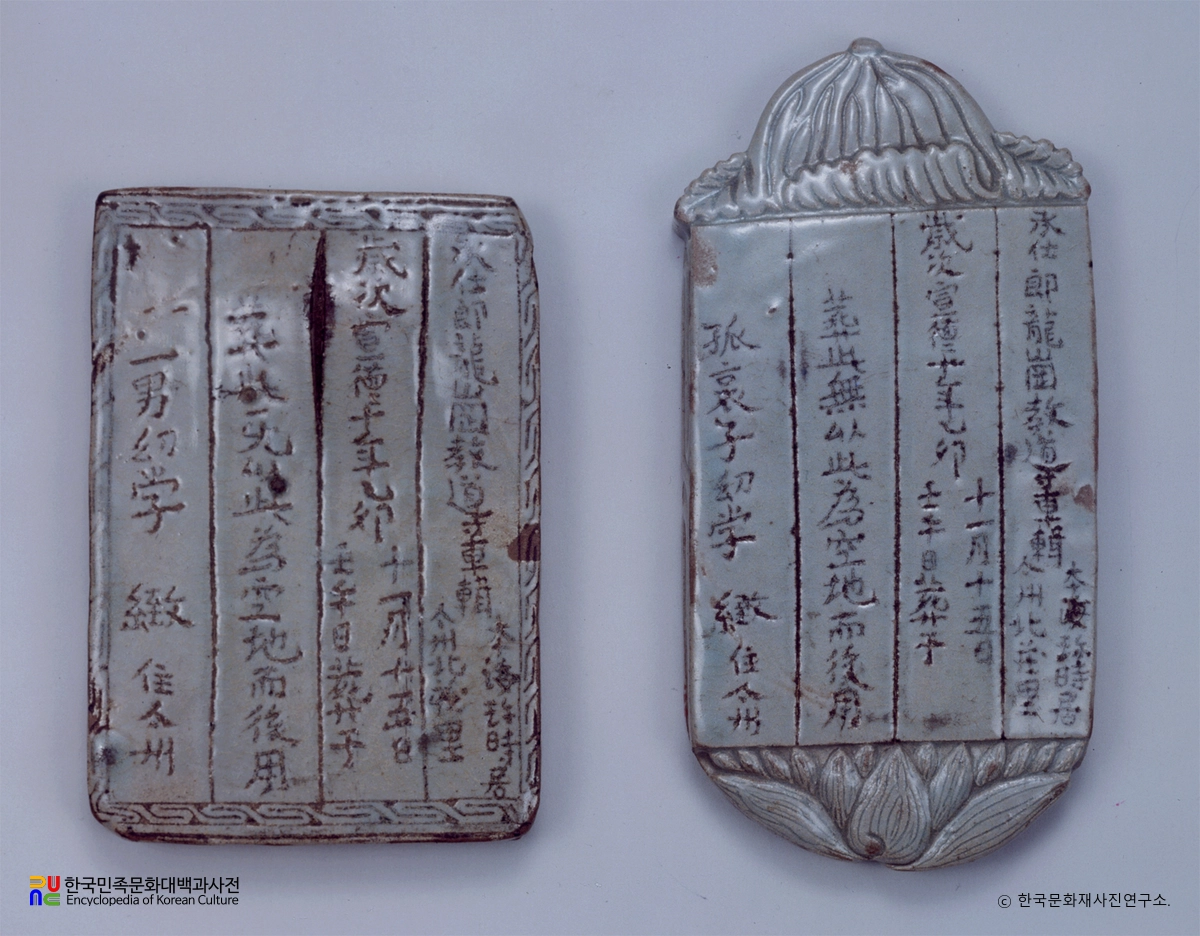 承仕郎龍崗教道輯
時居
仝州北里
歲次宣德十年乙卯
十一月十五日
壬午日葬于
葬此无以此為空地而後用
一男幼学 緻 住仝州
承仕郎龍崗教道輯
時居
仝州北里
歲次宣德十年乙卯
十一月十五日
壬午日葬于
葬此無以此為空地而後用
孤哀子幼学 緻 住仝州
한국민족문화대백과사전
Encyclopedia of Korean Culture
ⓒ 한국문화재사진연구소.